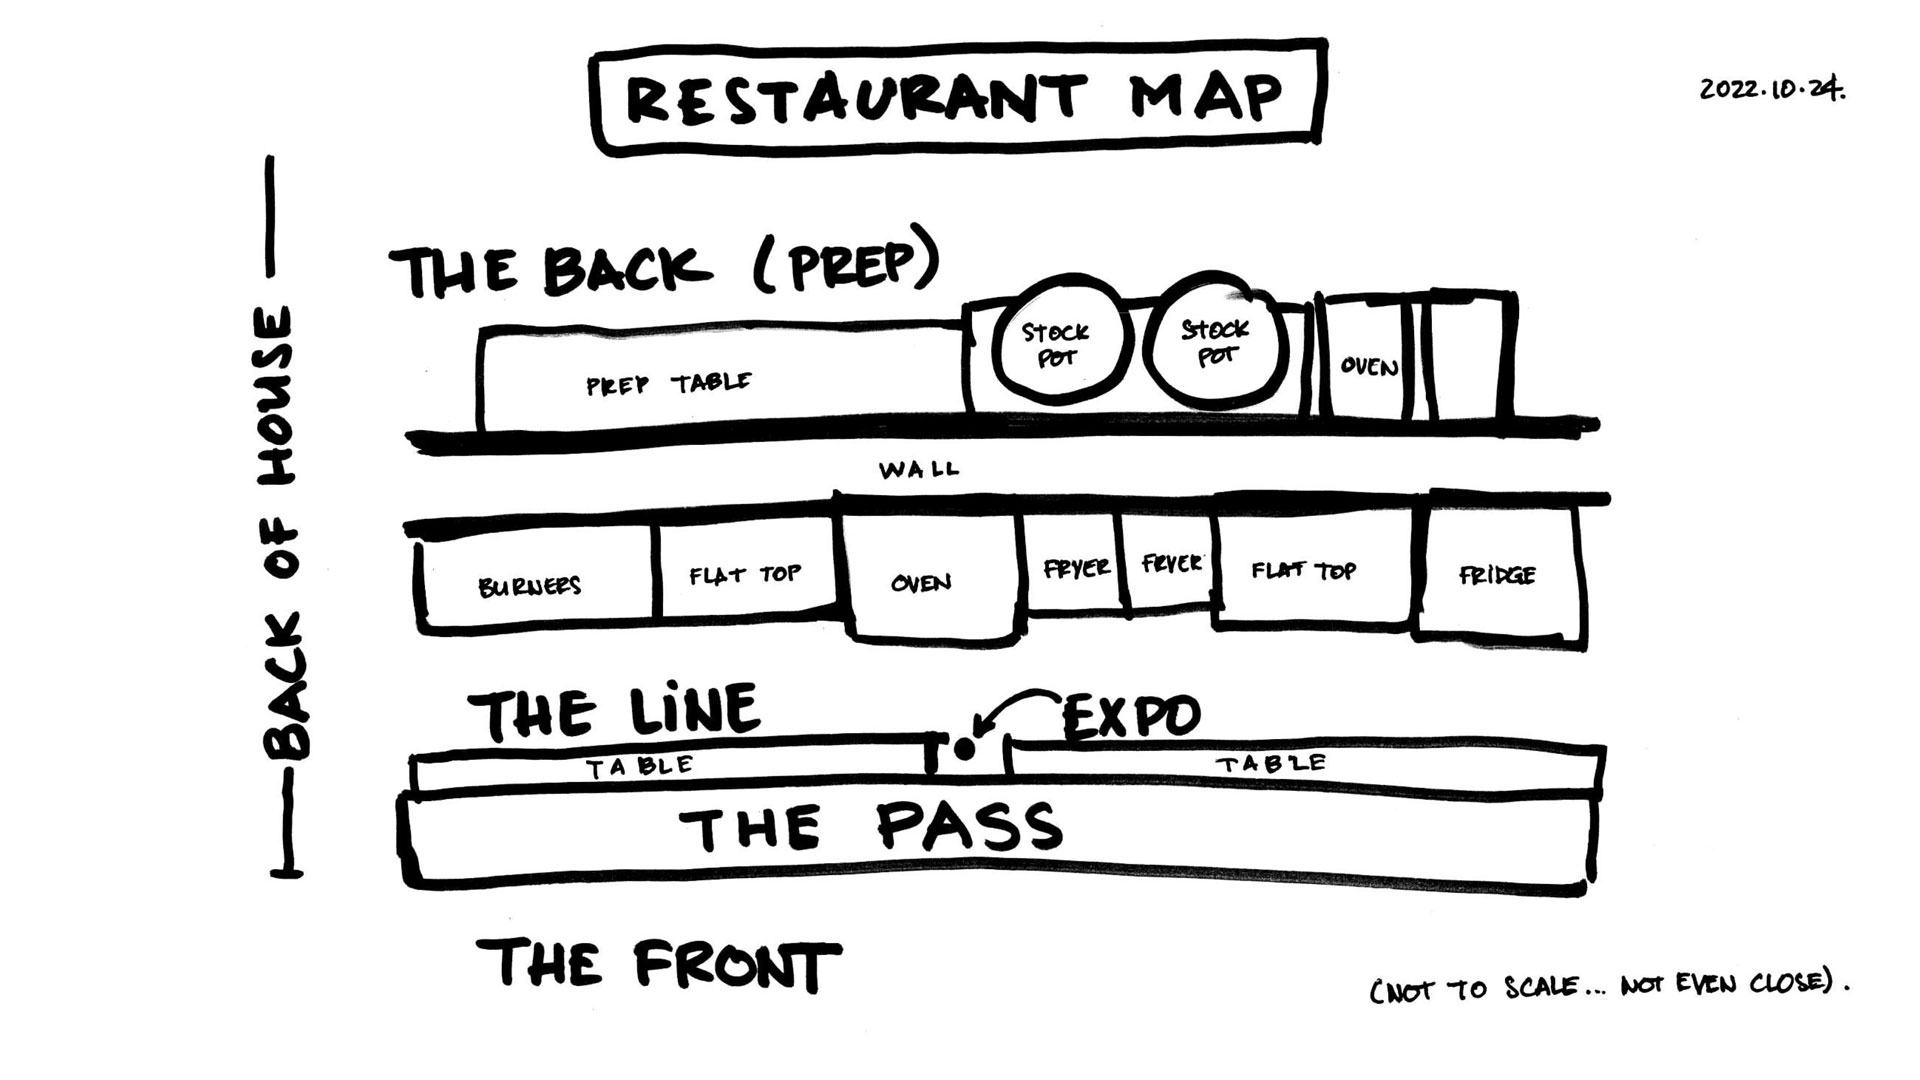 RESTAURANT MAP
2022.10.24.
BACK OF HOUSE
THE BACK (PREP)
PREP TABLE
STOCK
POT
STOCK
POT
OVEN
WALL
BURNERS
FLAT TOP
OVEN
FRYER
FRYER
FLAT TOP
FRIDGE
THE LiNE
EXPO
TABLE
TABLE
THE PASS
THE FRONT
(NOT TO SCALE... NOT EVEN CLOSE).